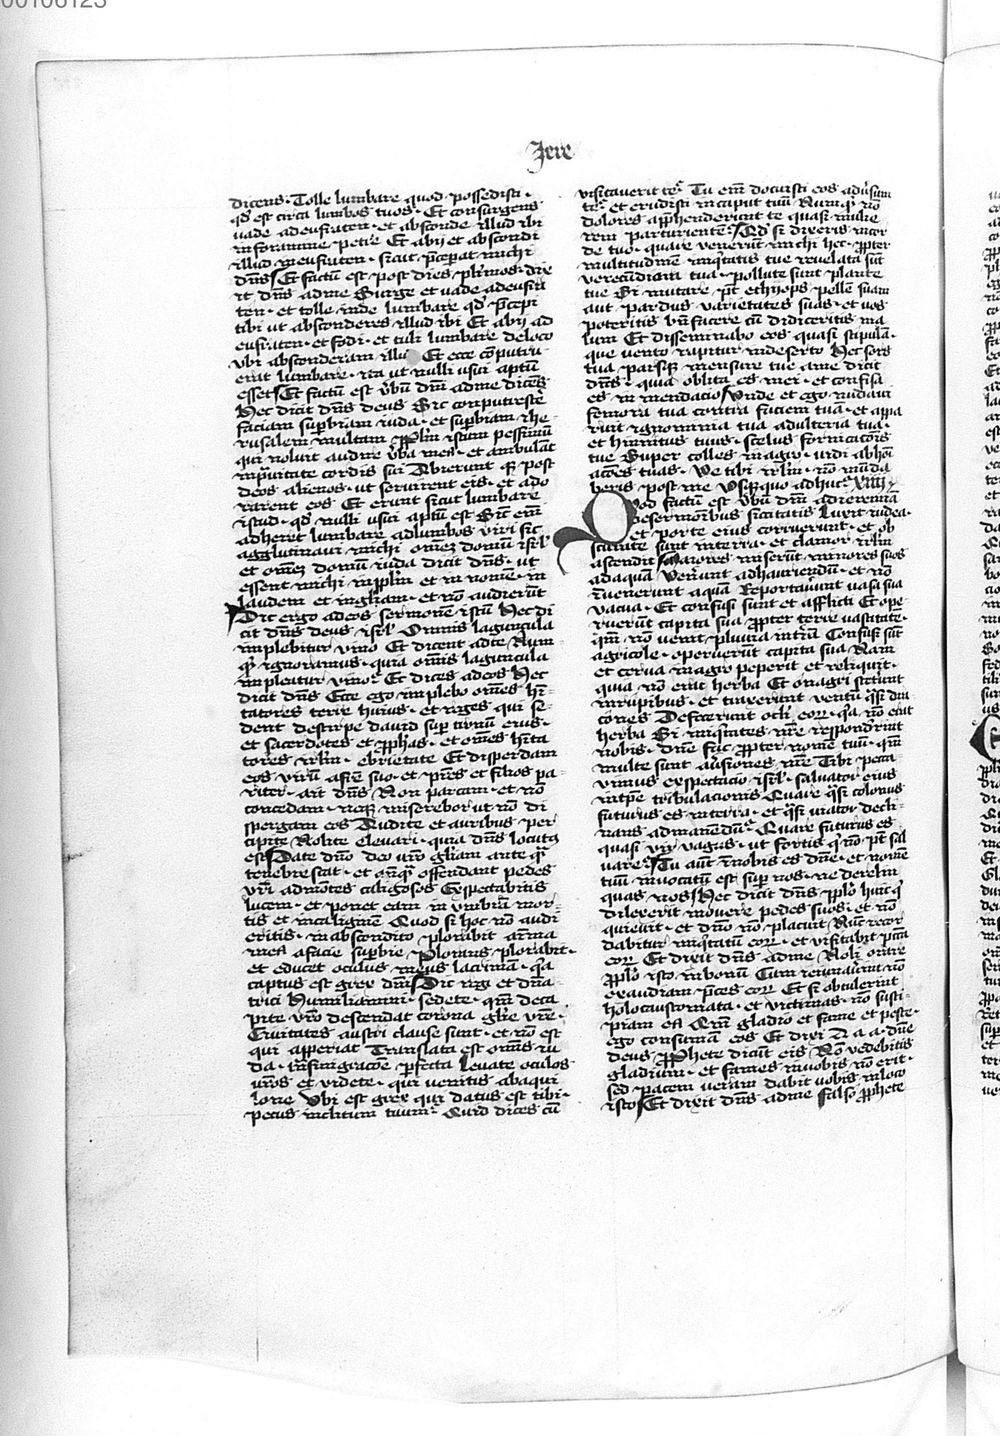 Jere
dicens · Tolle lumbare quod possedisti ·
qd̄ est circa lumbos tuos · Et consurgens
uade ad eufraten · et absconde illud ibi
in foramine petre Et abij et abscondi
illud in eufraten · sicut p̄ceperat michi
dn̄s Et factū est post dies pl̓imos dix
it dn̄s ad me Surge et uade ad eufra
ten · et tolle inde lumbare qd̄ p̄cepi
tibi ut absconderes illud ibi Et abij ad
eufraten · et fodi · et tuli lumbare de loco
ubi absconderam illu Et ecce cōputru
erat lumbare · ita ut nulli usui aptū
esset Et factū est v̄bū dn̄i ad me dicēs
Hec dicit dn̄s deus Sic conputrescē
faciam sup̄biam iuda · et sup̄biam ihe
rusalem multam ppl̄m istum pessimū
qui noluit audire v̄ba mea · et ambulāt
in p̄uitate cordis sui Abierunt qz post
deos alienos · ut seruirent eis · et ado
rarent eos Et erunt sicut lumbare
istud · qd̄ nulli usui aptū est Sic em̄
adheret lumbare ad lumbos viri sic
agglutinaui michi om̄ez domū isrl̓
et om̄ez domū iuda dicit dn̄s · ut
essent michi in ppl̄m et in nomē · in
laudem et in gl̄iam · et nō audierūt
Dic ergo ad eos sermonē istū Hec di
cit dn̄s deus isrl̓ Omnis laguncula
implebitur vino Et dicent ad te Num
q̄ ignoramus · quia om̄is laguncula
impleatur vino Et dices ad eos Hec
dicit dn̄s Ecce ego implebo om̄es hī
tatores terre huius · et reges qui se
dent de stirpe dauid sup̄ tronū eius ·
et sacerdotes et ꝓphas · et om̄es hīta
tores irl̄m · ebrietate Et disperdam
eos virū a frē suo · et pr̄es et filios pa
riter · ait dn̄s Non parcam · et nō
concedam · neqz miserebor ut nō di
spergam eos Audite et auribus per
cipite Nolite eleuari · quia dn̄s locutꝯ
est Date dn̄o deo ur̄o gl̄iam ante q̄
tenebrescat · et an̄q̄ offendant pedes
vr̄i ad mōtes caligosos Expectabitis
lucem · et ponet eam in vmbrā mor
tis et in caliginē Quod si hoc nō audi
eritis · in abscondito plorabit aīma
mea a facie supbie Plorans plorabit ·
et educet oculus meus lacrimā · q̄a
captus est grex dn̄i Dic regi et dn̄a
trici Humiliamini · sedete · qm̄ dece
pite vr̄o descendat corona gl̄ie vr̄e ·
Ciuitates austri clause sunt · et nō est
qui apperiat Translata est om̄is iu
da · trāsmigracōe perfecta Leuate oculos
vr̄os et videte · qui venitis ab aqui
lone Vbi est grex qui datus est tibi ·
pecus inclitum tuum Quid dices cū
visitauerit te Tu em̄ docuisti eos adūsum
te et erudisti in caput tuū Numq̄ nō
dolores app̄henderunt te quasi mulie
rem parturientē Qd̄ si dixeris in cor
de tuo · quare venerūt michi hec · ꝓpter
multitudinē iniq̄tatis tue reuelata sūt
verecūdiora tua · pollute sunt plante
tue Si mutare pt̄ ethyops pellē suam
aut pardus varietates suas · et uos
poteritis bn̄ facere cū didiceritis ma
lum Et disseminabo eos quasi stipulā ·
que vento rapitur in deserto Hec sors
tua parsqz mensure tue a me dicit
dn̄s · quia oblita es mei · et confisa
es in mendacio Vnde et ego nudaui
femora tua contra faciem tuā · et appa
ruit ignominia tua adulteria tua ·
et hinnitus tuus · scelus fornicacōis
tue Super colles in agro · uidi abhoī
acōes tuas · Ve tibi irl̄m · nō mūda
beris post me vsq̄quo adhuc XIIII
Quod factū est v̄bū dn̄i ad ieremiā
de sermonibus siccitatis Luxit iudea ·
et porte eius corruerunt · et ob
scurate sunt in terra · et clamor irl̄m
ascendit Maiores miserūt minores suos
ad aquā Venerunt ad hauriendū · et nō
īuenerunt aquā Reportauerunt vasa sua
vacua · Et confusi sunt et afflicti Et ope
ruerūt capita sua ꝓpter terre vastitatē ·
qm̄ nō venit pluuia in t̄rā Confusi sūt
agricole · operuerūt capita sua Nam
et cerua in agro peperit et reliquit ·
quia nō erat herba Et onagri steterūt
in rupibus · et traxerunt ventū q̄si dra
cōes Defecerunt oc̄li eoꝝ · q̄a nō erat
herba Si iniq̄tates nr̄e respond̓int
nobis · dn̄e fac ꝓpter nomē tuū · qm̄
multe sunt au̓siones nr̄e Tibi pecca
uimus expectacio isrl̓ · saluator eius
in tp̄e tribulacionis Quare q̄si colonus
futurus es in terra · et q̄si uiator decli
nans ad manēdū Quare futurus es
quasi vir vagus · ut fortis q̄ nō pt̄ sal
uare Tu aūt ī nobis es dn̄e · et nomē
tuū inuocatū est sup̄ nos · ne derelin
quas nos Hec dicit dn̄s ppl̄o huic q̄
dilexerit mouere pedes suos · et nō
quieuit · et dn̄o nō placuit Nūc recor
dabitur iniq̄tatū eoꝝ · et visitabit pcc̄a
eoꝝ Et dixit dn̄s ad me Noli orare
ꝓ ppl̄o isto in bonū Cum ieiunauerint nō
exaudiam p̄ces eoꝝ Et si obtulerint
holocaustomata · et victimas · nō susci
piam ea Qm̄ gladio et fame et peste ·
ego consumā eos Et dixi A a a · dn̄e
deus · ꝓphete dicūt eis Nō videbitis
gladium · et fames in uobis nō erit ·
sed pacem veram dabit uobis in loco
isto Et dixit dn̄s ad me falso ꝓphete